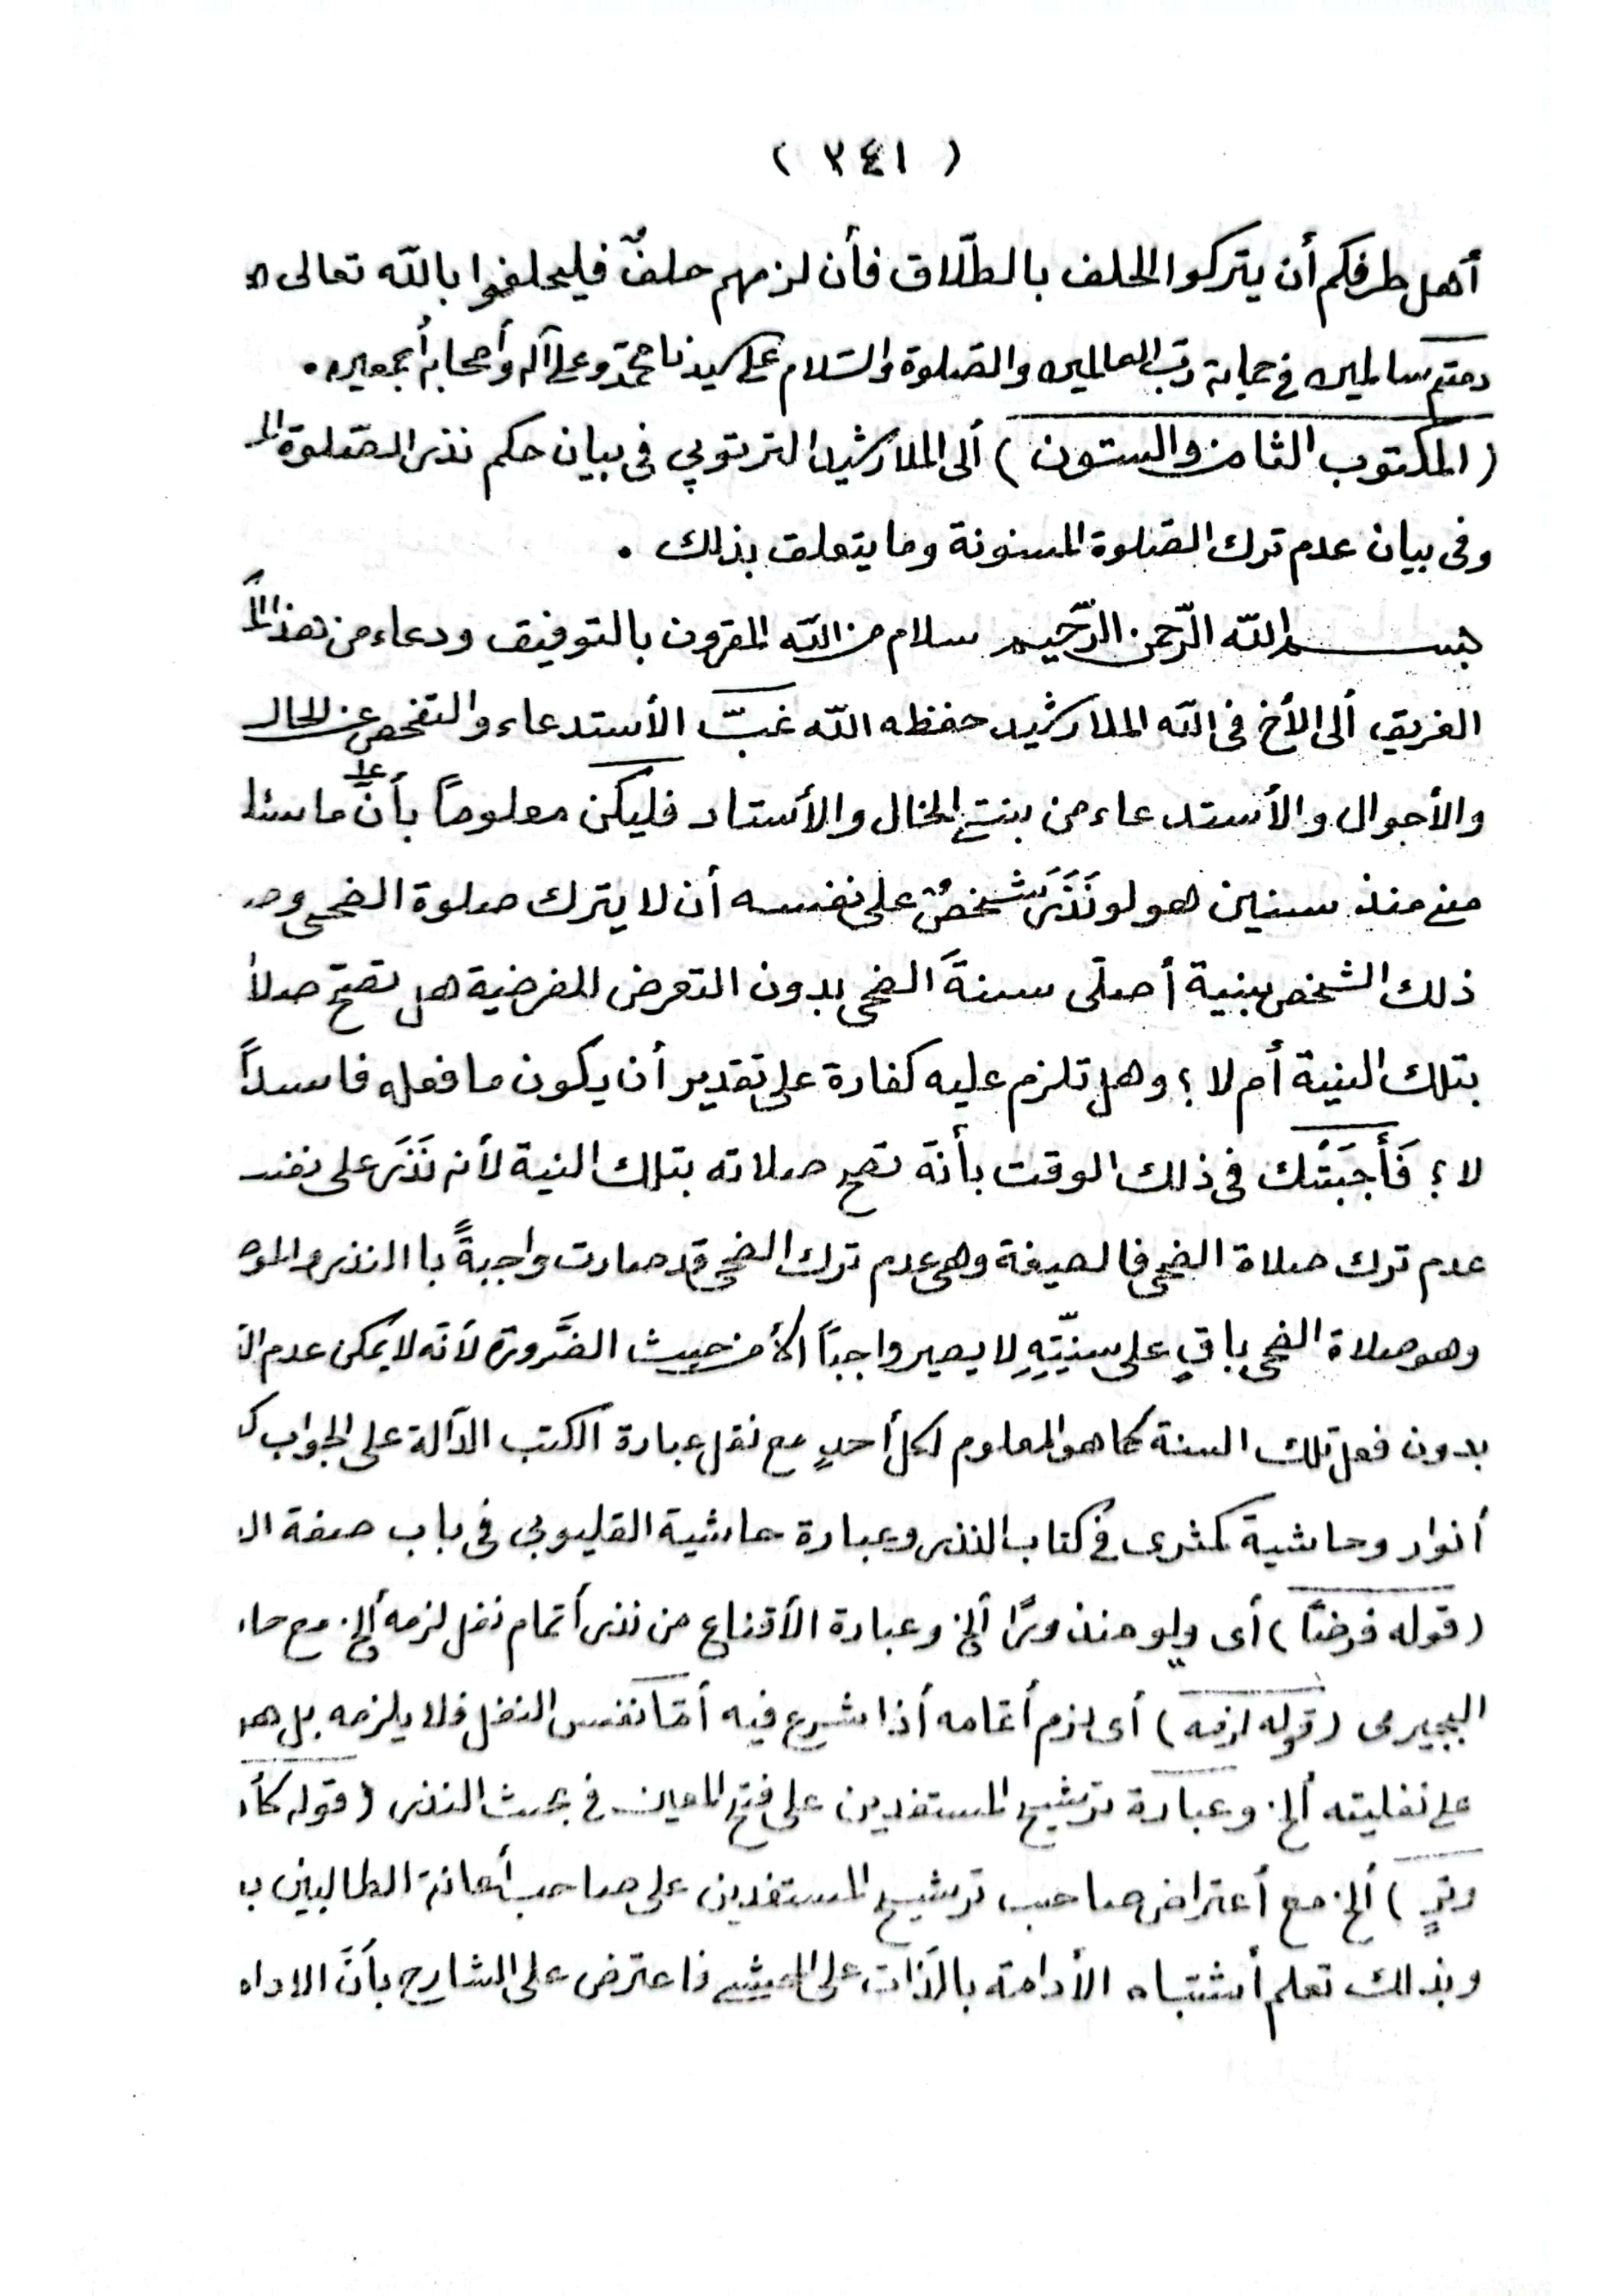 ( ٣٤١ )
أهل طرفكم أن يتركوا الحلف بالطلّاق فأن لزمهم حلفٌ فليحلفوا بالله تعالى
دمتم سالمين في حماية ربّ العالمين والصّلوة والسّلام على سيدنا محمّد وعلى آله وأصحابه أجمعين .
( المكتوب الثامن والستون ) ألى الملا رشيد الترتوپي فى بيان حكم نذر الصّلوة
وفى بيان عدم ترك الصّلوة المسنونة وما يتعلق بذلك .
بسم الله الرّحمن الرّحيم سلام من الله المقرون بالتوفيق ودعاء من هذا
الغريق ألى الأخ فى الله الملا رشيد حفظه الله غبّ الأستدعاء والتفحص عن الحال
والأحوال والأستدعاء من بنت الخال والأستاد فليكن معلوماً بأنّ ما
منى منذ سنين هو لو نَذَرَ شخصٌ على نفسه أن لا يترك صلوة الضحى
ذلك الشخص بنية أصلّى سنةَ الضحى بدون التعرض للفرضية هل تصحّ
بتلك النية أم لا ؛ وهل تلزم عليه كفارة على تقدير أن يكون ما فعله فاسداً
لا ؛ فَأَجَبْتُك فى ذلك الوقت بأنّه تصح صلاته بتلك النية لأنه نَذَرَ على
عدم ترك صلاة الضحى فالصيفة وهى عدم ترك الضحى قد صارت واجبةً باالنذر
وهو صلاة الضحى باقٍ على سنيّتِهِ لا يصير واجباً ألا من حيث الضَّرورة لأنّه لا يمكن عدم
بدون فعل تلك السنة كما هو المعلوم لكل أحدٍ مع نقل عبارة الكتب الدّالة على الجواب
أنوار وحاشية كمثرى فى كتاب النذر وعبارة حاشية القليوبى فى باب صفة
( قوله فرضاً ) أى ولو منذوراً ألخ وعبارة الأقناع من نذر أتمام نفل لزمه ألخ مع
البجيرمى ( قوله لزمه ) أى لزم أتمامه أذا شرع فيه أمّا نفس النفل فلا يلزمه بل هو
على نفليته ألخ وعبارة ترشيح المستفدين على فتح المعين فى بحث النذر ( قوله
وترٍ ) ألخ مع أعتراض صاحب ترشيح المستفدين على صاحب أعانة الطالبين
وبذلك تعلم أشتباه الأدامة بالذّات على المحشى فاعترض على الشارح بأنّ